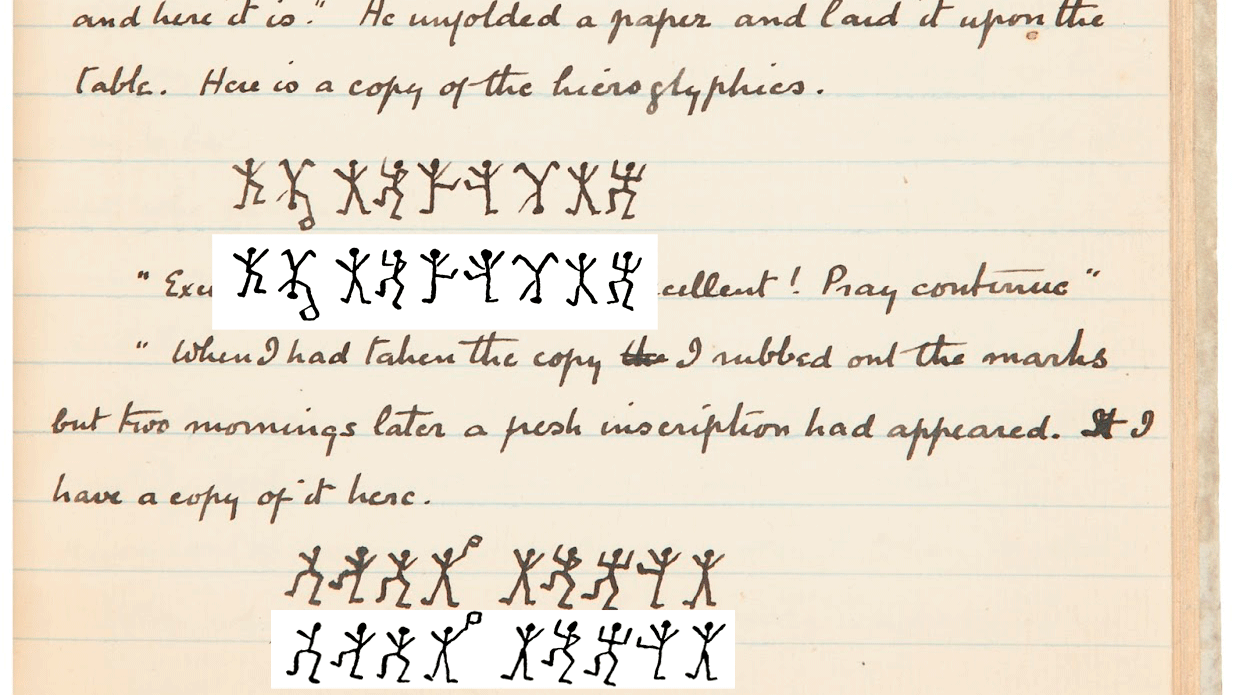 and here it is." He unfolded a paper and laid it upon the
table. Here is a copy of the hieroglyphics.
" cellent! Pray continue"
" When I had taken the copy the I rubbed out the marks
but two mornings later a fresh inscription had appeared. It I
have a copy of it here.